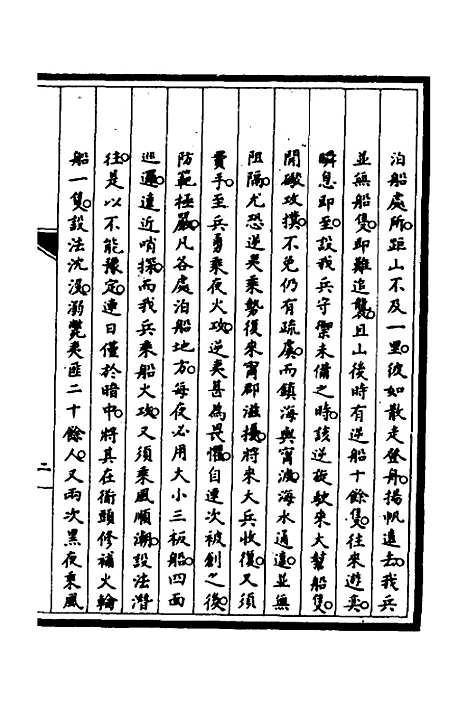 泊船處所。距山不及一里。彼如散走登舟。揚帆遠去。我兵
並無船隻。即難追襲。且山後時有逆船十餘隻。往來遊奕。
瞬息即至。設我兵守禦未備之時。該逆旋駛來大幫船隻。
開礮攻撲。不免仍有疏虞。而鎮海與甯波。海水通連。並無
阻隔。尤恐逆夷乘勢復來甯郡滋擾。將來大兵收復。又須
費手。至兵勇乘夜火攻。逆夷甚為畏懼。自連次被創之後。
防範極嚴。凡各處泊船地方。每夜必用大小三板船。四面
巡邏。遠近哨探。而我兵乘船火攻。又須乘風順潮。設法潛
往。是以不能豫定。連日僅於暗中。將其在衙頭修補火輪
船一隻。設法沈沒。溺斃夷匪二十餘人。又兩次黑夜乘風
二